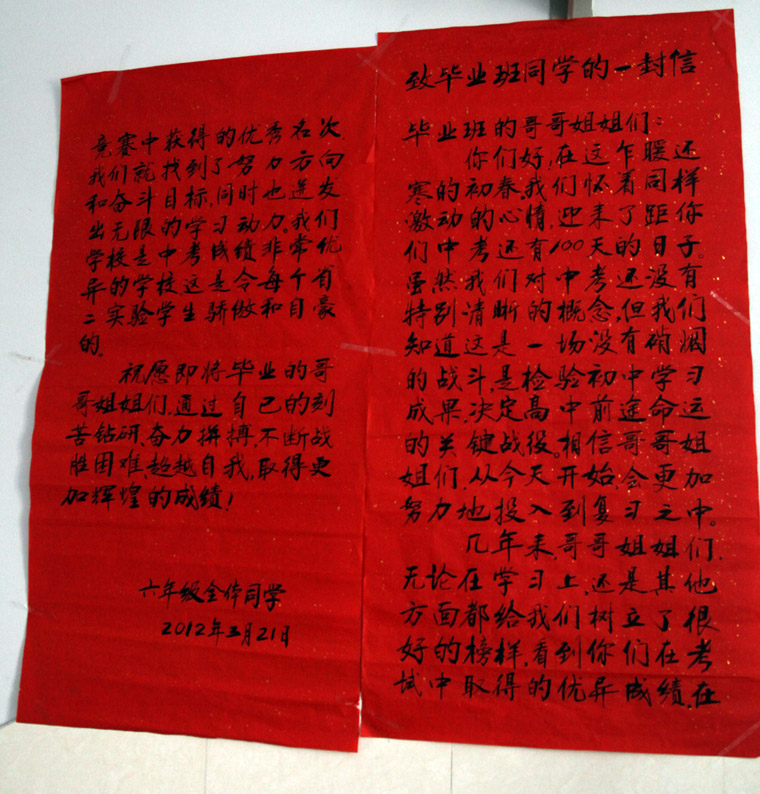 致毕业班同学的一封信
毕业班的哥哥姐姐们：
你们好，在这乍暖还
寒的初春，我们怀着同样
激动的心情，迎来了距你
们中考还有100天的日子。
虽然我们对中考还没有
特别清晰的概念，但我们
知道这是一场没有硝烟
的战斗，是检验初中学习
成果，决定高中前途命运
的关键战役。相信哥哥姐
姐们，从今天开始，会更加
努力地投入到复习之中。
几年来，哥哥姐姐们，
无论在学习上，还是其他
方面都给我们树立了很
好的榜样，看到你们在考
试中取得的优异成绩，在
竞赛中获得的优秀名次
我们就找到了努力方向
和奋斗目标，同时也迸发
出无限的学习动力。我们
学校是中考成绩非常优
异的学校这是令每个省
二实验学生骄傲和自豪
的。
祝愿即将毕业的哥
哥姐姐们，通过自己的刻
苦钻研，奋力拼搏，不断战
胜困难，超越自我，取得更
加辉煌的成绩！
六年级全体同学
2012年3月21日